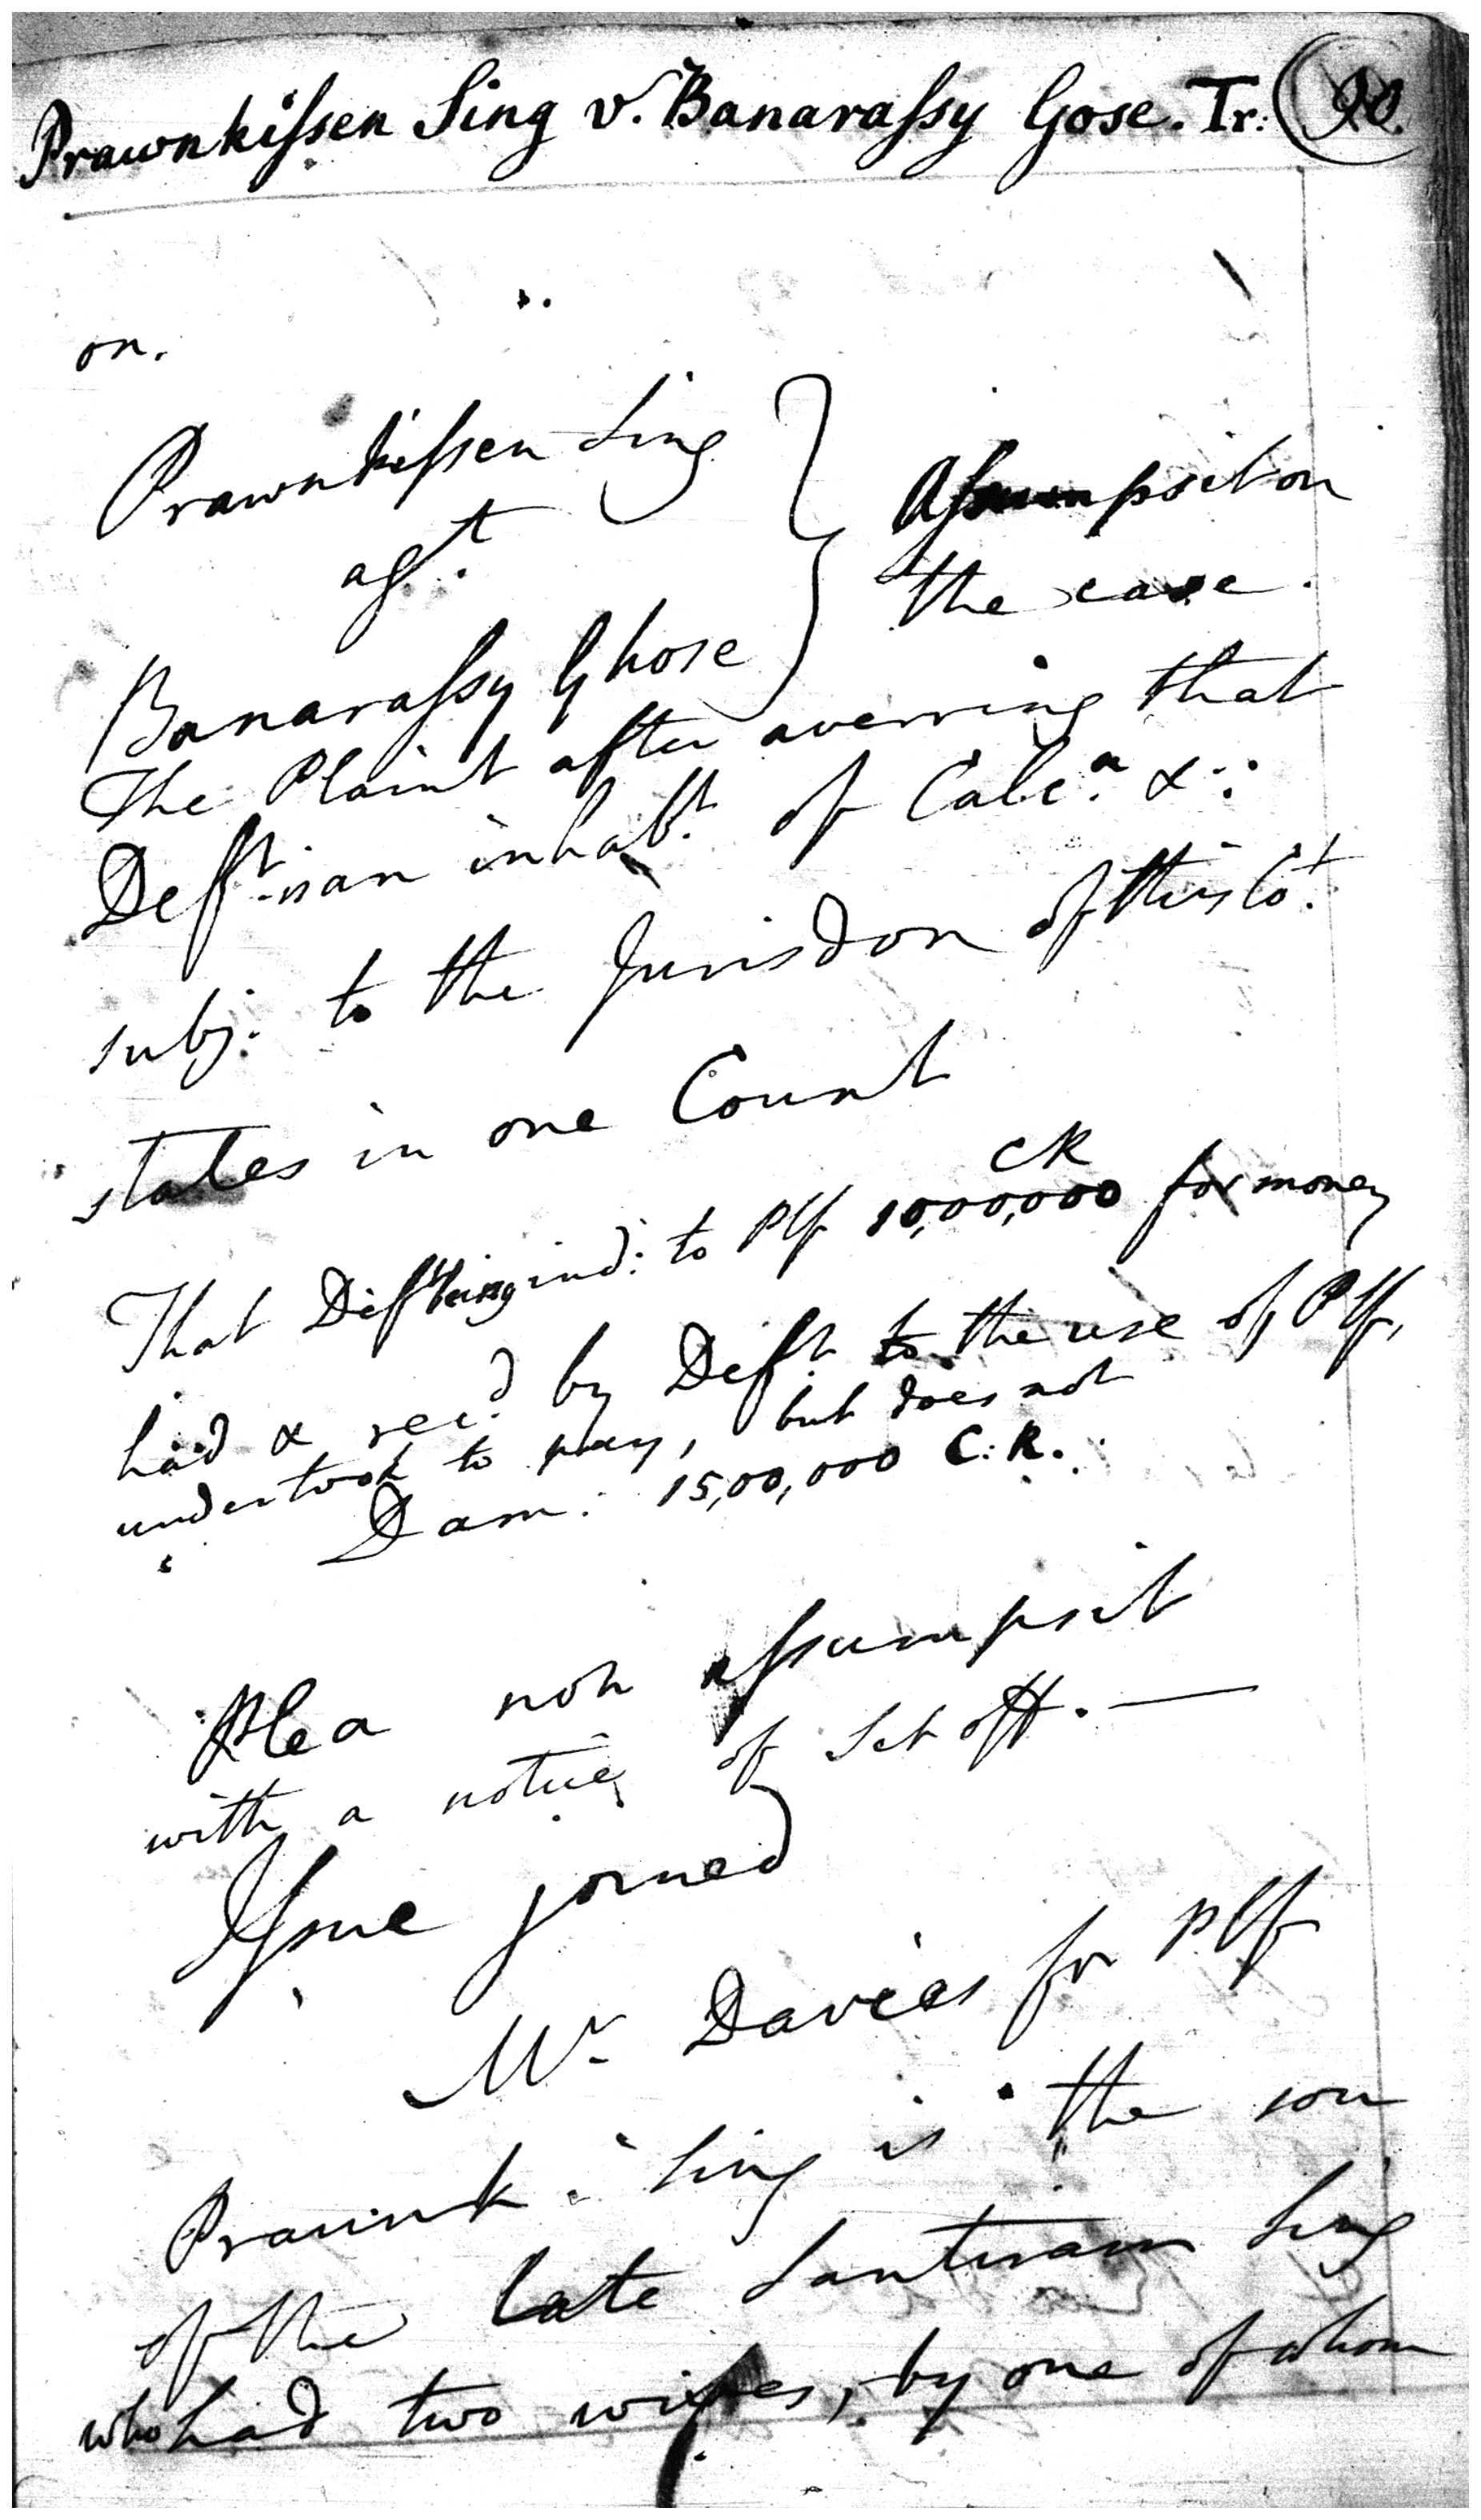 Prawnkissen Sing v. Banarassy Gose. Tr: 90.
on.
Prawnkissen Sing
agt.
Banarassy Ghose
Assumpsit on
the case.
The Plaint after averring that
Deft. is an inhabt. of Calca. &
subj. to the Jurisdon of this Cot.
states in one Count
CR
That Deft being ind: to Plf 10,00,000 for money
had & recd. by Deft. to the use of Plf,
undertook to pay, but does not
Dam: 15,00,000 C.R.
Plea non assumpsit
with a notice of Set off.—
Issue joined
Mr. Davies for Plf
Prawnk. Sing is the son
of the late Santiram Sing
who had two wifes, by one of whom